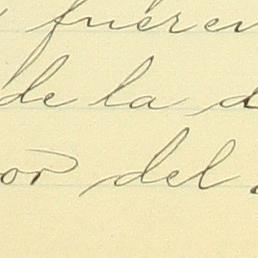 fueren
de la d
or del